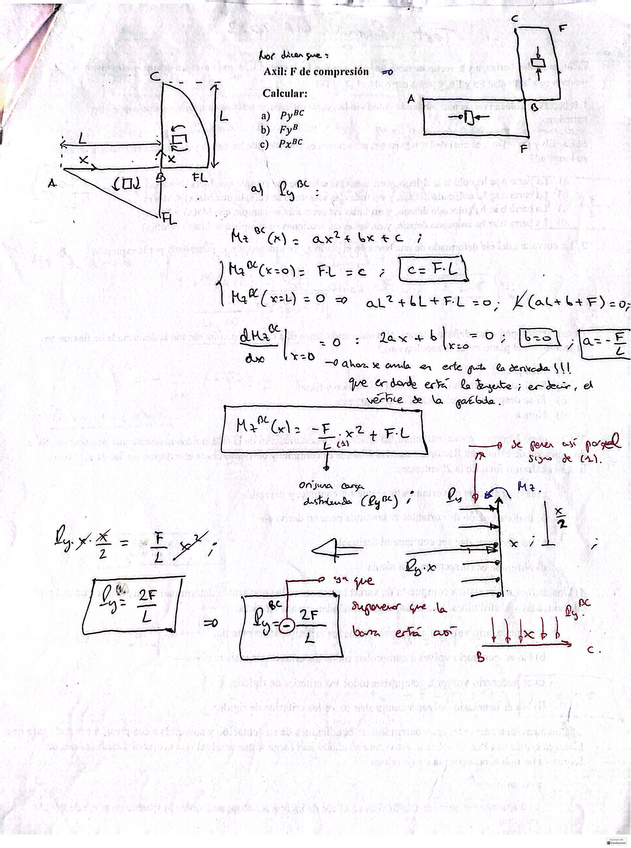 Nos dicen que:
Axil: F de compresión =0
Calcular:
a) Py^BC
b) Fy^B
c) Px^BC
C
L
L
A
x
B
x
FL
FL
C
F
A
B
F
a) Py^BC :
Mz^BC(x) = ax² + bx + c ;
Mz^BC(x=0) = F·L = c ; c = F·L
Mz^BC(x=L) = 0 ⇒ aL² + bL + F·L = 0; L(aL+b+F)=0;
dMz^BC/dx |x=0 = 0 : 2ax + b |x=0 = 0 ; b=0 ; a = -F/L
→ ahora se anula en este punto la derivada!!!
que es donde está la tangente; es decir, el
vértice de la parábola.
Mz^BC(x) = -F/L · x² + F·L
(1)
origina carga
distribuida (Py^BC) ;
se pones así por el
signo de (1).
Py
Mz.
x/2
x ;
;
Py·x
Py·x·x/2 = F/L x² ;
Py = 2F/L
⇒
Py^BC = - 2F/L
ya que
suponemos que la
barra está así
Py^BC
x
B
C.